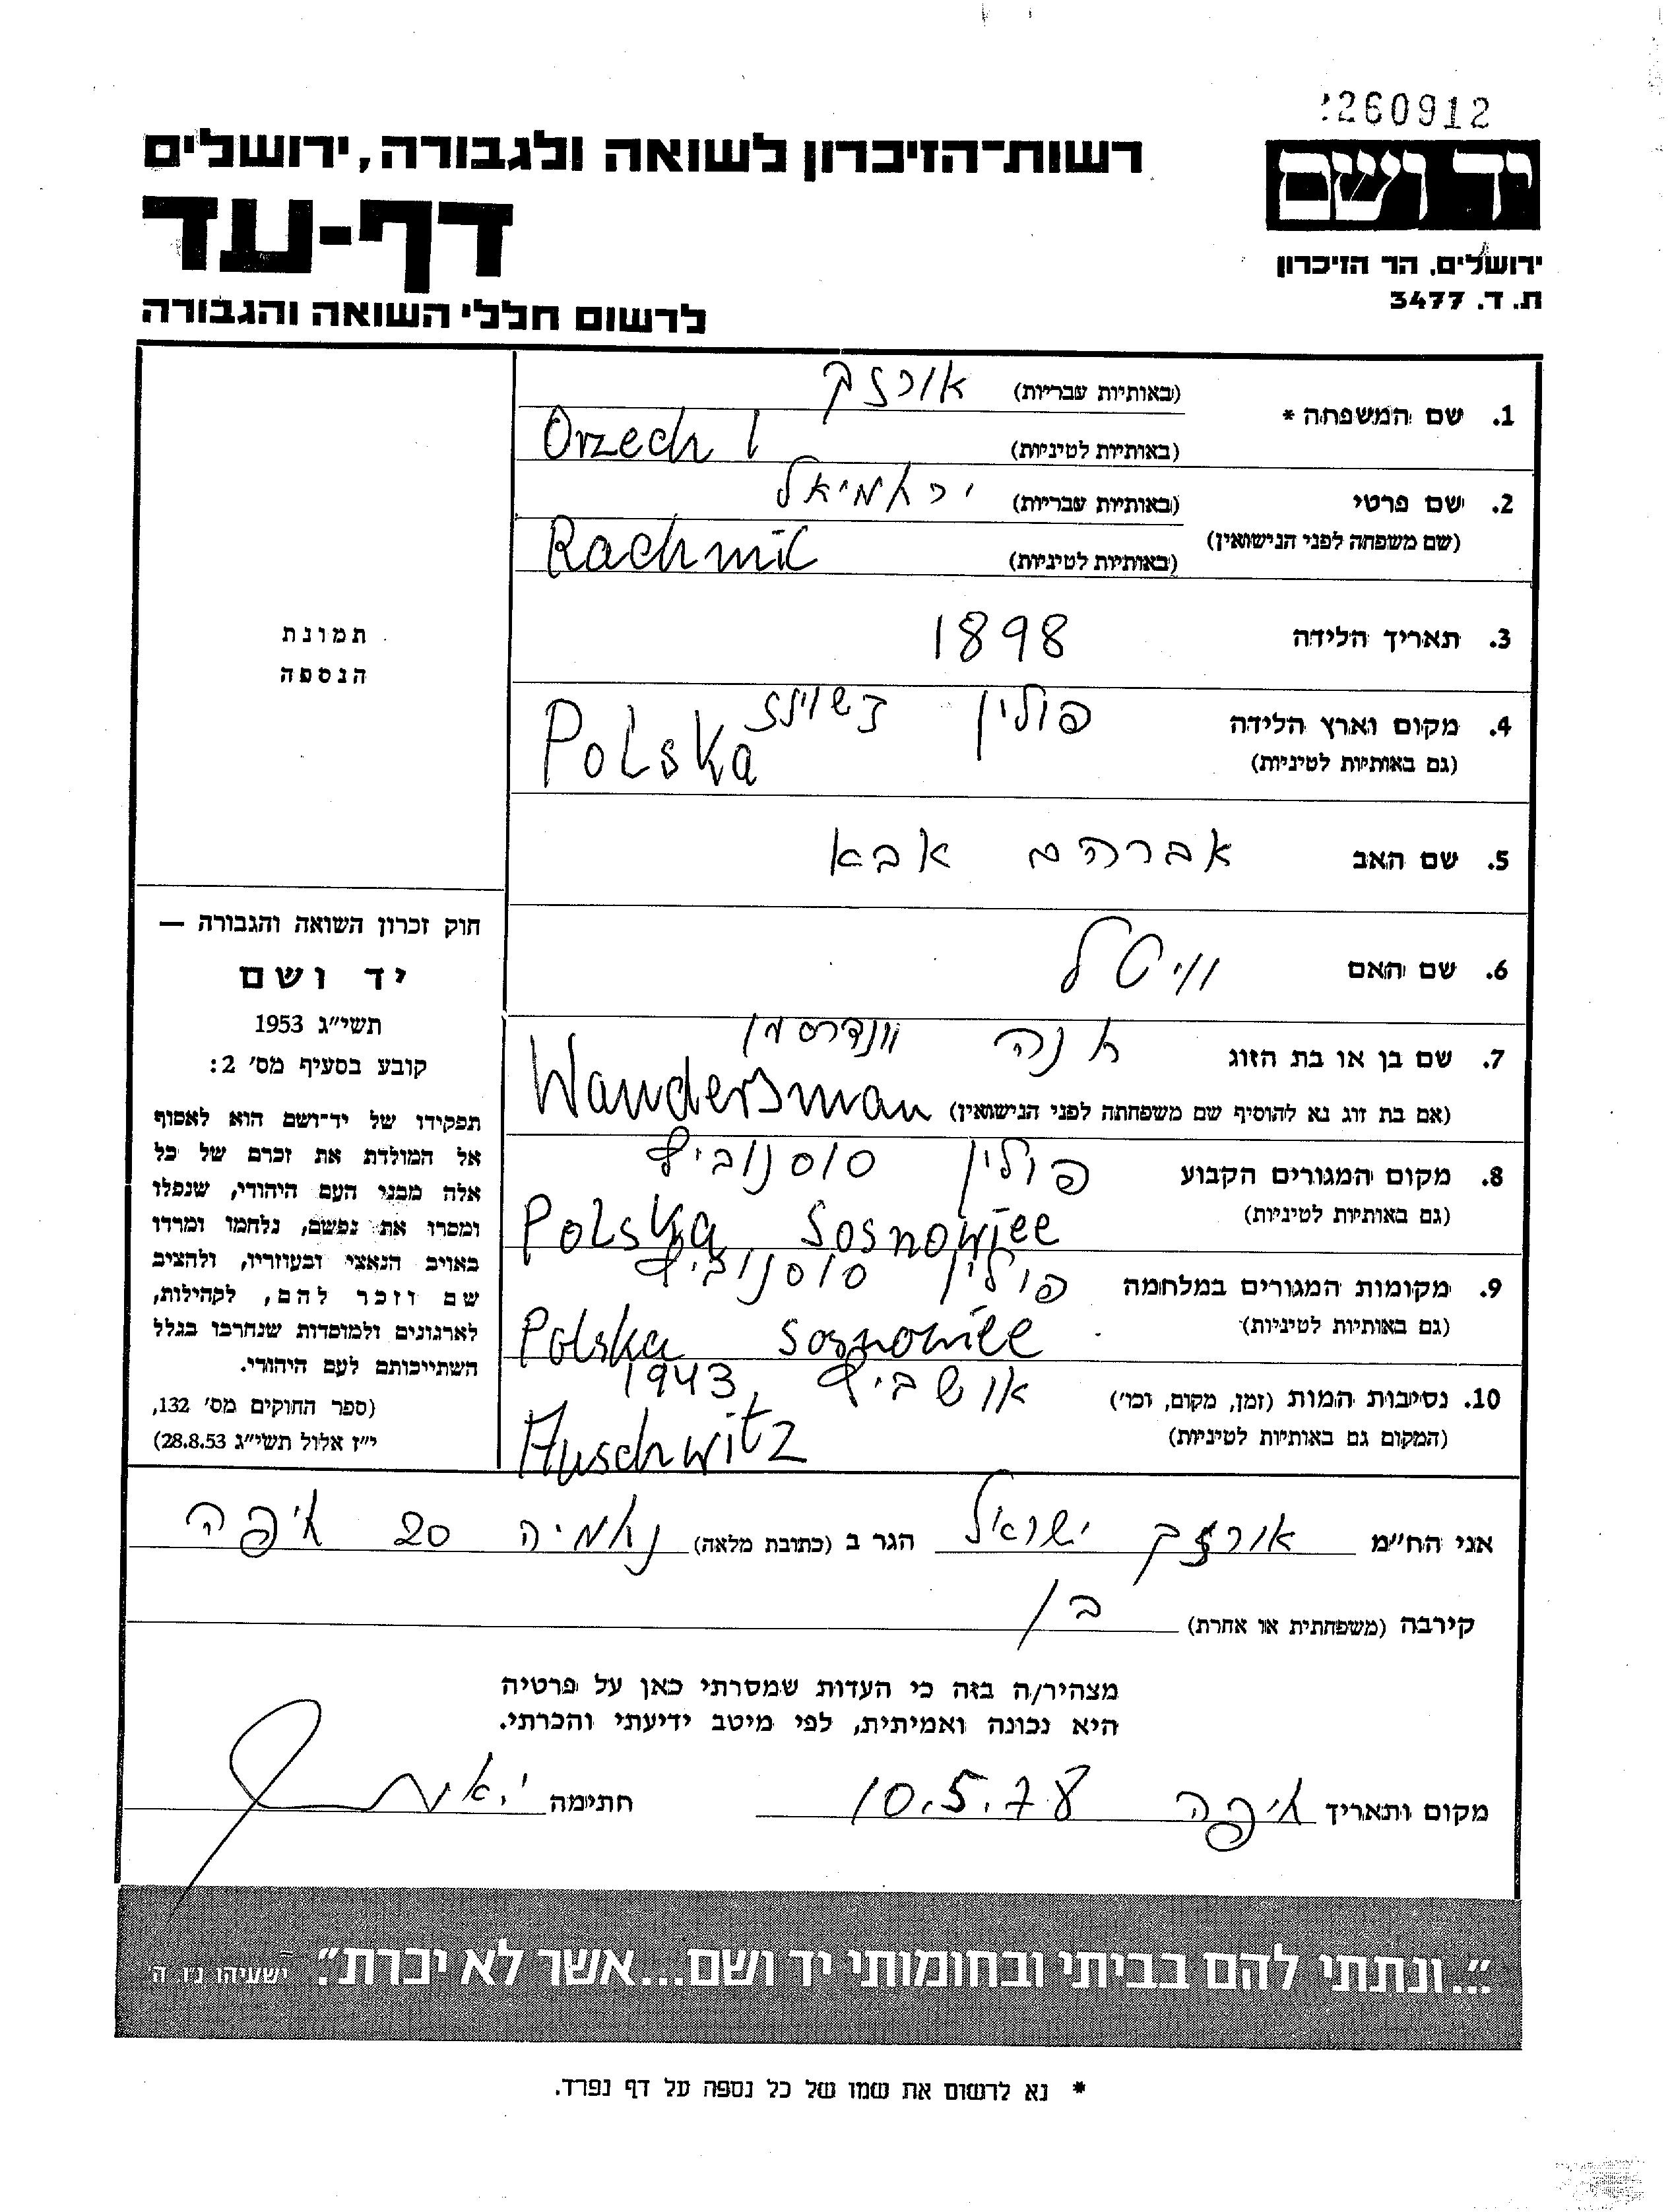 260912
יד ושם
רשות־הזיכרון לשואה ולגבורה, ירושלים
דף-עד
ירושלים, הר הזיכרון
ת. ד. 3477
לרשום חללי השואה והגבורה
1. שם המשפחה * (באותיות עבריות) אורזך
(באותיות לטיניות) Orzech
2. שם פרטי (באותיות עבריות) ירחמיאל
(שם משפחה לפני הנישואין) (באותיות לטיניות) Rachmil
3. תאריך הלידה 1898
4. מקום וארץ הלידה פולין
(גם באותיות לטיניות) Polska
5. שם האב אברהם אבא
6. שם האם וויטל
7. שם בן או בת הזוג חנה וונדרסמן
(אם בת זוג נא להוסיף שם משפחתה לפני הנישואין) Wandersman
8. מקום המגורים הקבוע פולין סוסנוביץ
(גם באותיות לטיניות) Polska Sosnowiec
9. מקומות המגורים במלחמה פולין סוסנוביץ
(גם באותיות לטיניות) Polska Sosnowiec
10. נסיבות המות (זמן, מקום, וכו') אושביץ, 1943
(המקום גם באותיות לטיניות) Auschwitz
תמונת
הנספה
חוק זכרון השואה והגבורה —
יד ושם
תשי״ג 1953
קובע בסעיף מס׳ 2:
תפקידו של יד־ושם הוא לאסוף
אל המולדת את זכרם של כל
אלה מבני העם היהודי, שנפלו
ומסרו את נפשם, נלחמו ומרדו
באויב הנאצי ובעוזריו, ולהציב
שם וזכר להם, לקהילות,
לארגונים ולמוסדות שנחרבו בגלל
השתייכותם לעם היהודי.
(ספר החוקים מס׳ 132,
י״ז אלול תשי״ג 28.8.53)
אני הח״מ אורזך ישראל הגר ב (כתובת מלאה) נחמיה 20 חיפה
קירבה (משפחתית או אחרת) בן
מצהיר/ה בזה כי העדות שמסרתי כאן על פרטיה
היא נכונה ואמיתית, לפי מיטב ידיעתי והכרתי.
מקום ותאריך חיפה 10.5.78 חתימה
״...ונתתי להם בביתי ובחומותי יד ושם...אשר לא יכרת״. ישעיהו נ״ו, ה׳
* נא לרשום את שמו של כל נספה על דף נפרד.